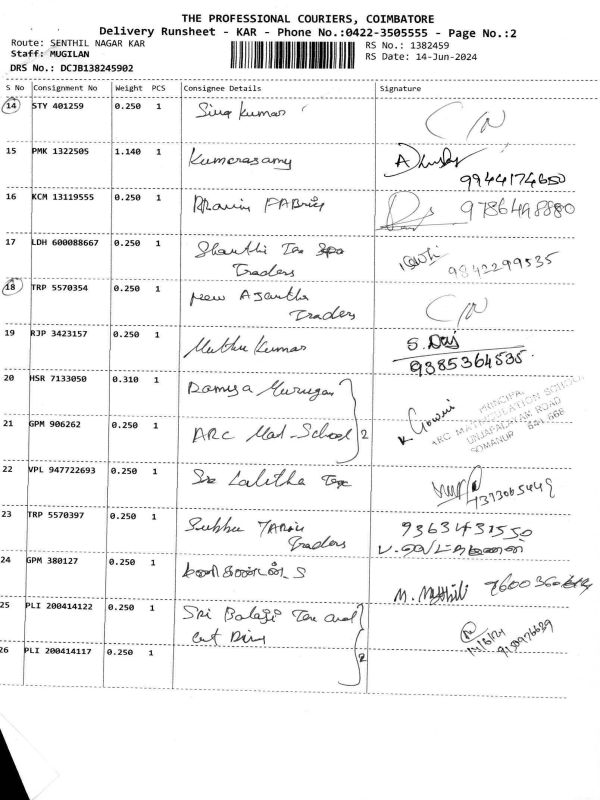 THE PROFESSIONAL COURIERS, COIMBATORE
Delivery Runsheet - KAR - Phone No.:0422-3505555 - Page No.:2
Route: SENTHIL NAGAR KAR
RS No.: 1382459
Staff: MUGILAN
RS Date: 14-Jun-2024
DRS No.: DCJB138245902
S No Consignment No Weight PCS Consignee Details Signature
14 STY 401259 0.250 1 Siva Kumar C/N
15 PMK 1322505 1.140 1 Kumarasamy
9944174650
16 KCM 13119555 0.250 1 FABrics 9786498880
17 LDH 600088667 0.250 1 Shanthi Tex
Traders 9842299535
18 TRP 5570354 0.250 1 New Ajantha C/N
Traders
19 RJP 3423157 0.250 1 Muthu Kumar S. Raj
9385364535.
20 HSR 7133050 0.310 1 Ramya Murugan
21 GPM 906262 0.250 1 ARC Mat-School 2 K Gowri
PRINCIPAL
ARC MATRICULATION SCHOOL
ROAD
SOMANUR 641 668
22 VPL 947722693 0.250 1 Sre Lalitha Tex 7373065449
23 TRP 5570397 0.250 1 Subhu Fabric 9363431550
Traders
24 GPM 380127 0.250 1 M. Mythili
25 PLI 200414122 0.250 1 Sri Balaji Tex and
Cut Piring 14/6/24
26 PLI 200414117 0.250 1 2